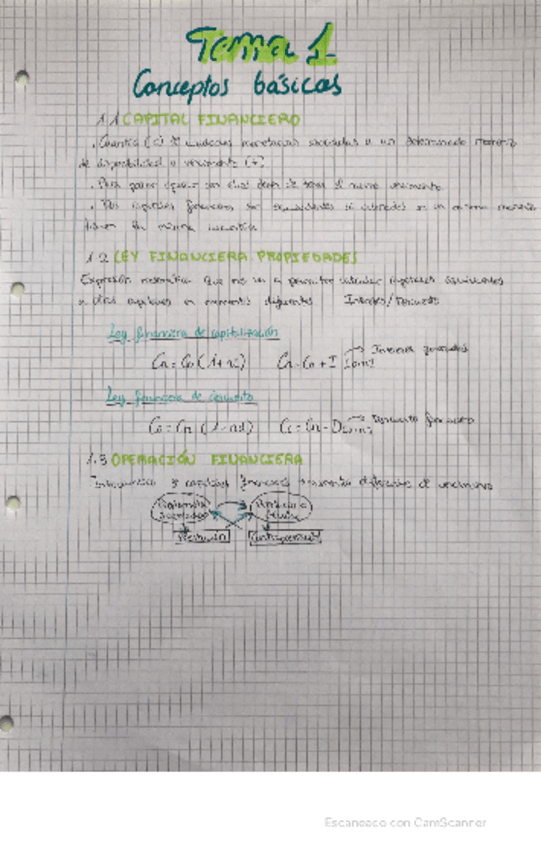 Tema 1
Conceptos básicos
1.1 CAPITAL FINANCIERO
. Cuantía (c) de unidades monetarias asociadas a un determinado momento
de disponibilidad o vencimiento (t)
. Para poder operar con ellos deben de tener el mismo vencimiento
. Dos capitales financieros son equivalentes si valorados en un mismo momento
tienen la misma cuantía
1.2 LEY FINANCIERA. PROPIEDADES
Expresión matemática que nos va a permitir calcular capitales equivalentes
a otros capitales en momentos diferentes Interés/Descuento
Ley financiera de capitalización
Cn = Co (1+ni) Cn = Co + I Intereses generados
Ley financiera de descuento
Co = Cn (1-nd) Co = Cn - D Descuento
1.3 OPERACIÓN FINANCIERA
Intercambio de capitales financieros momentos diferentes de vencimiento
Prestación Contraprestación
Escaneado con CamScanner